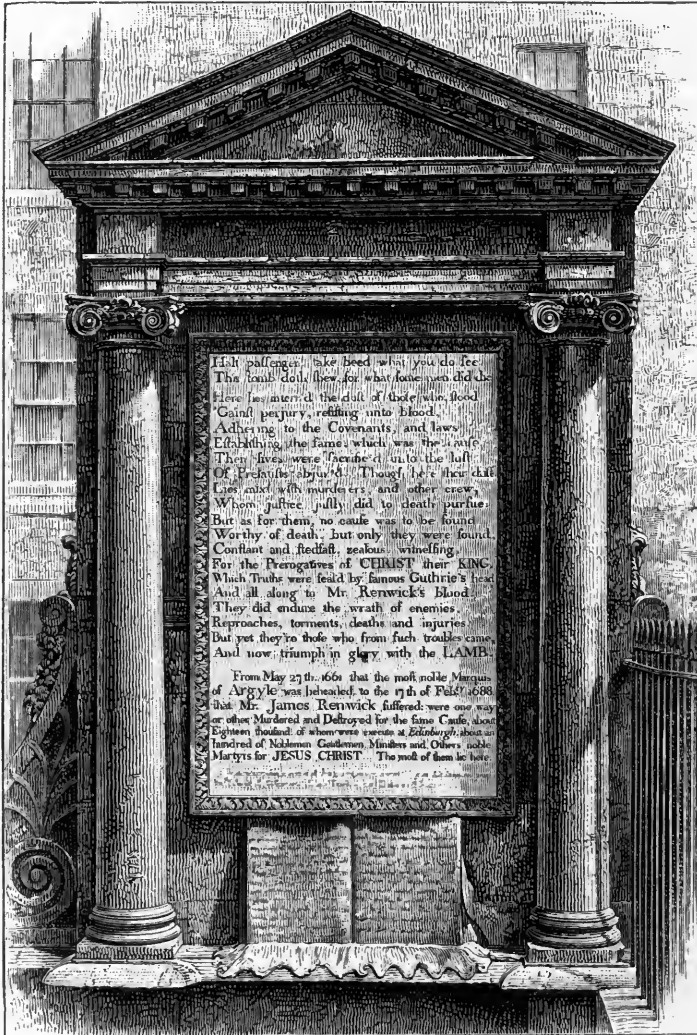 Halt paſſenger, take heed what you do ſee
This tomb doth ſhew, for what ſome men did die
Here lies interr'd the duſt of thoſe who ſtood
'Gainſt perjury, reſiſting unto blood,
Adhering to the Covenants, and laws
Eſtabliſhing the ſame: which was the cauſe
Their lives were ſacrific'd unto the luſt
Of Prelatiſts abjur'd. Though here their duſt
Lies mixt with murderers, and other crew,
Whom juſtice juſtly did to death purſue:
But as for them, no cauſe was to be found
Worthy of death, but only they were found,
Conſtant and ſtedfaſt, zealous, witneſſing,
For the Prerogatives of CHRIST their KING,
Which Truths were ſeal'd by famous Guthrie's head
And all along to Mr. Renwick's Blood
They did endure the wrath of enemies,
Reproaches, torments, deaths and injuries
But yet they're thoſe who from ſuch troubles came,
And now triumph in glory with the LAMB.
From May 27th. 1661 that the moſt noble Marquis
of Argyle was beheaded, to the 17th of Febry. 1688
that Mr. James Renwick ſuffered: were one way
or other Murdered and Deſtroyed for the ſame Cauſe, about
Eighteen thouſand: of whom were execute at Edinburgh, about an
hundred of Noblemen, Gentlemen, Miniſters and Others noble
Martyrs for JESUS CHRIST. The moſt of them lie here.